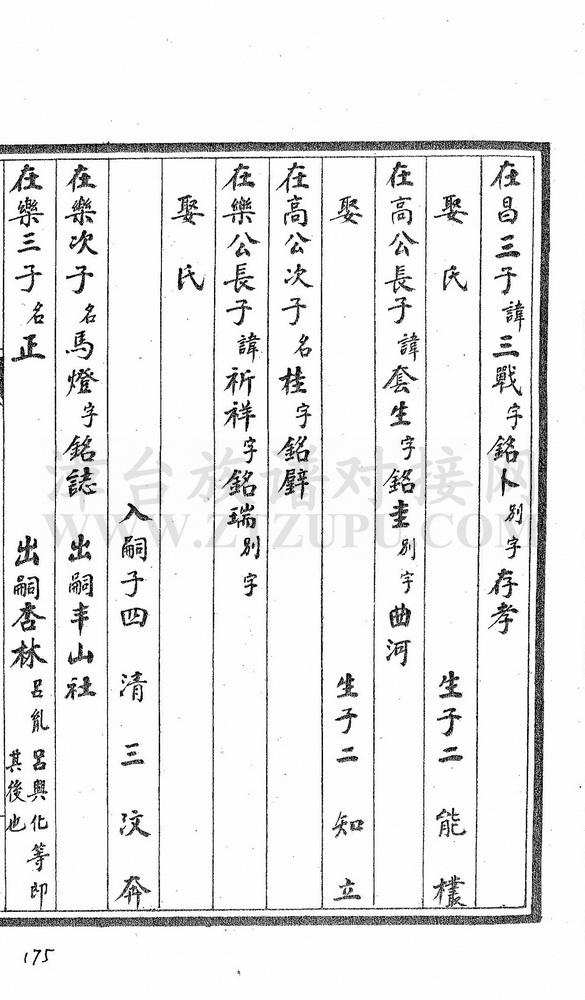 在昌三子諱三戰字銘卜別字存孝
娶氏 生子二 能 檏
在高公長子諱套生字銘圭別字曲河
娶 生子二 知 立
在高公次子名桂字銘璧
在樂公長子諱祈祥字銘瑞別字
娶氏
入嗣子四 清 三 汶 奔
在樂次子名馬燈字銘誌 出嗣丰山社
在樂三子名正 出嗣杏林 呂胤 呂興化等即其後也
175
漳台族谱对接网
WWW.ZTZUPU.COM